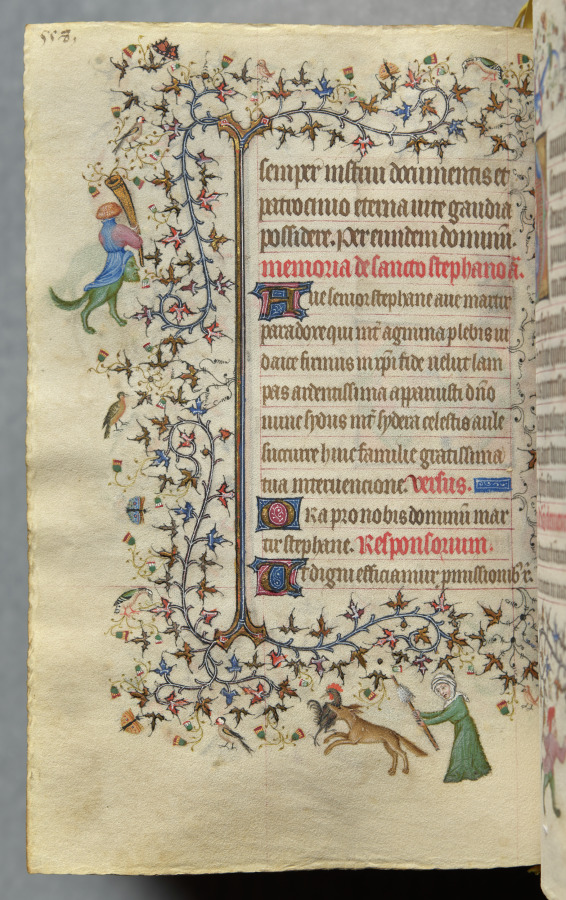 558.
semper instrui documentis et
patrocinio eterna vite gaudia
possidere. Per eundem dominum.
memoria de sancto stephano añ.
Ave senior stephane ave martir
paradore qui int̃ agmina plebis iu
daice firmus in xp̃i fide velut lam
pas ardentissima apparuisti dño
nunc sydus int̃ sydera celestis aule
succurre huic familie gratissima
tua intervencione. versus.
Ora pro nobis dominum mar
tir stephane. Responsorium.
Ut digni efficiamur pmissionib̃ ẋ.